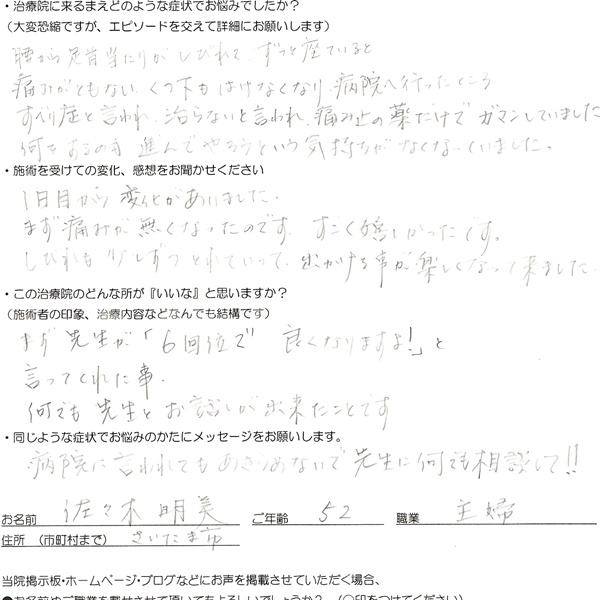 ・治療院に来るまえどのような症状でお悩みでしたか？
（大変恐縮ですが、エピソードを交えて詳細にお願いします）
腰から足首当たりがしびれて、ずっと座ていると
痛みがともない、くつ下もはけなくなり、病院へ行ったところ
すべり症と言われ、治らないと言われ、痛み止の薬だけでガマンしていました
何をするの も 進んでやろうという気持ちがなくなっていました。
・施術を受けての変化、感想をお聞かせください
1日目から変化がありました。
まず痛みが無くなったのです。すごく嬉しかったです。
しびれも少しずつとれていって、出かける事が楽しくなって来ました。
・この治療院のどんな所が『いいな』と思いますか？
（施術者の印象、治療内容などなんでも結構です）
まず先生が「6回位で 良くなりますよ!」と
言ってくれた事.
何でも先生とお話しが出来たことです
・同じような症状でお悩みのかたにメッセージをお願いします。
病院に言われてもあきらめないで先生に何でも相談して!!
お名前 佐々木 明美 ご年齢 52 職業 主婦
住所 （市町村まで） さいたま市
当院掲示板・ホームページ・ブログなどにお声を掲載させていただく場合、
●お名前やご職業を載せさせて頂いてもよろしいでしょうか？ （○印をつけてください）